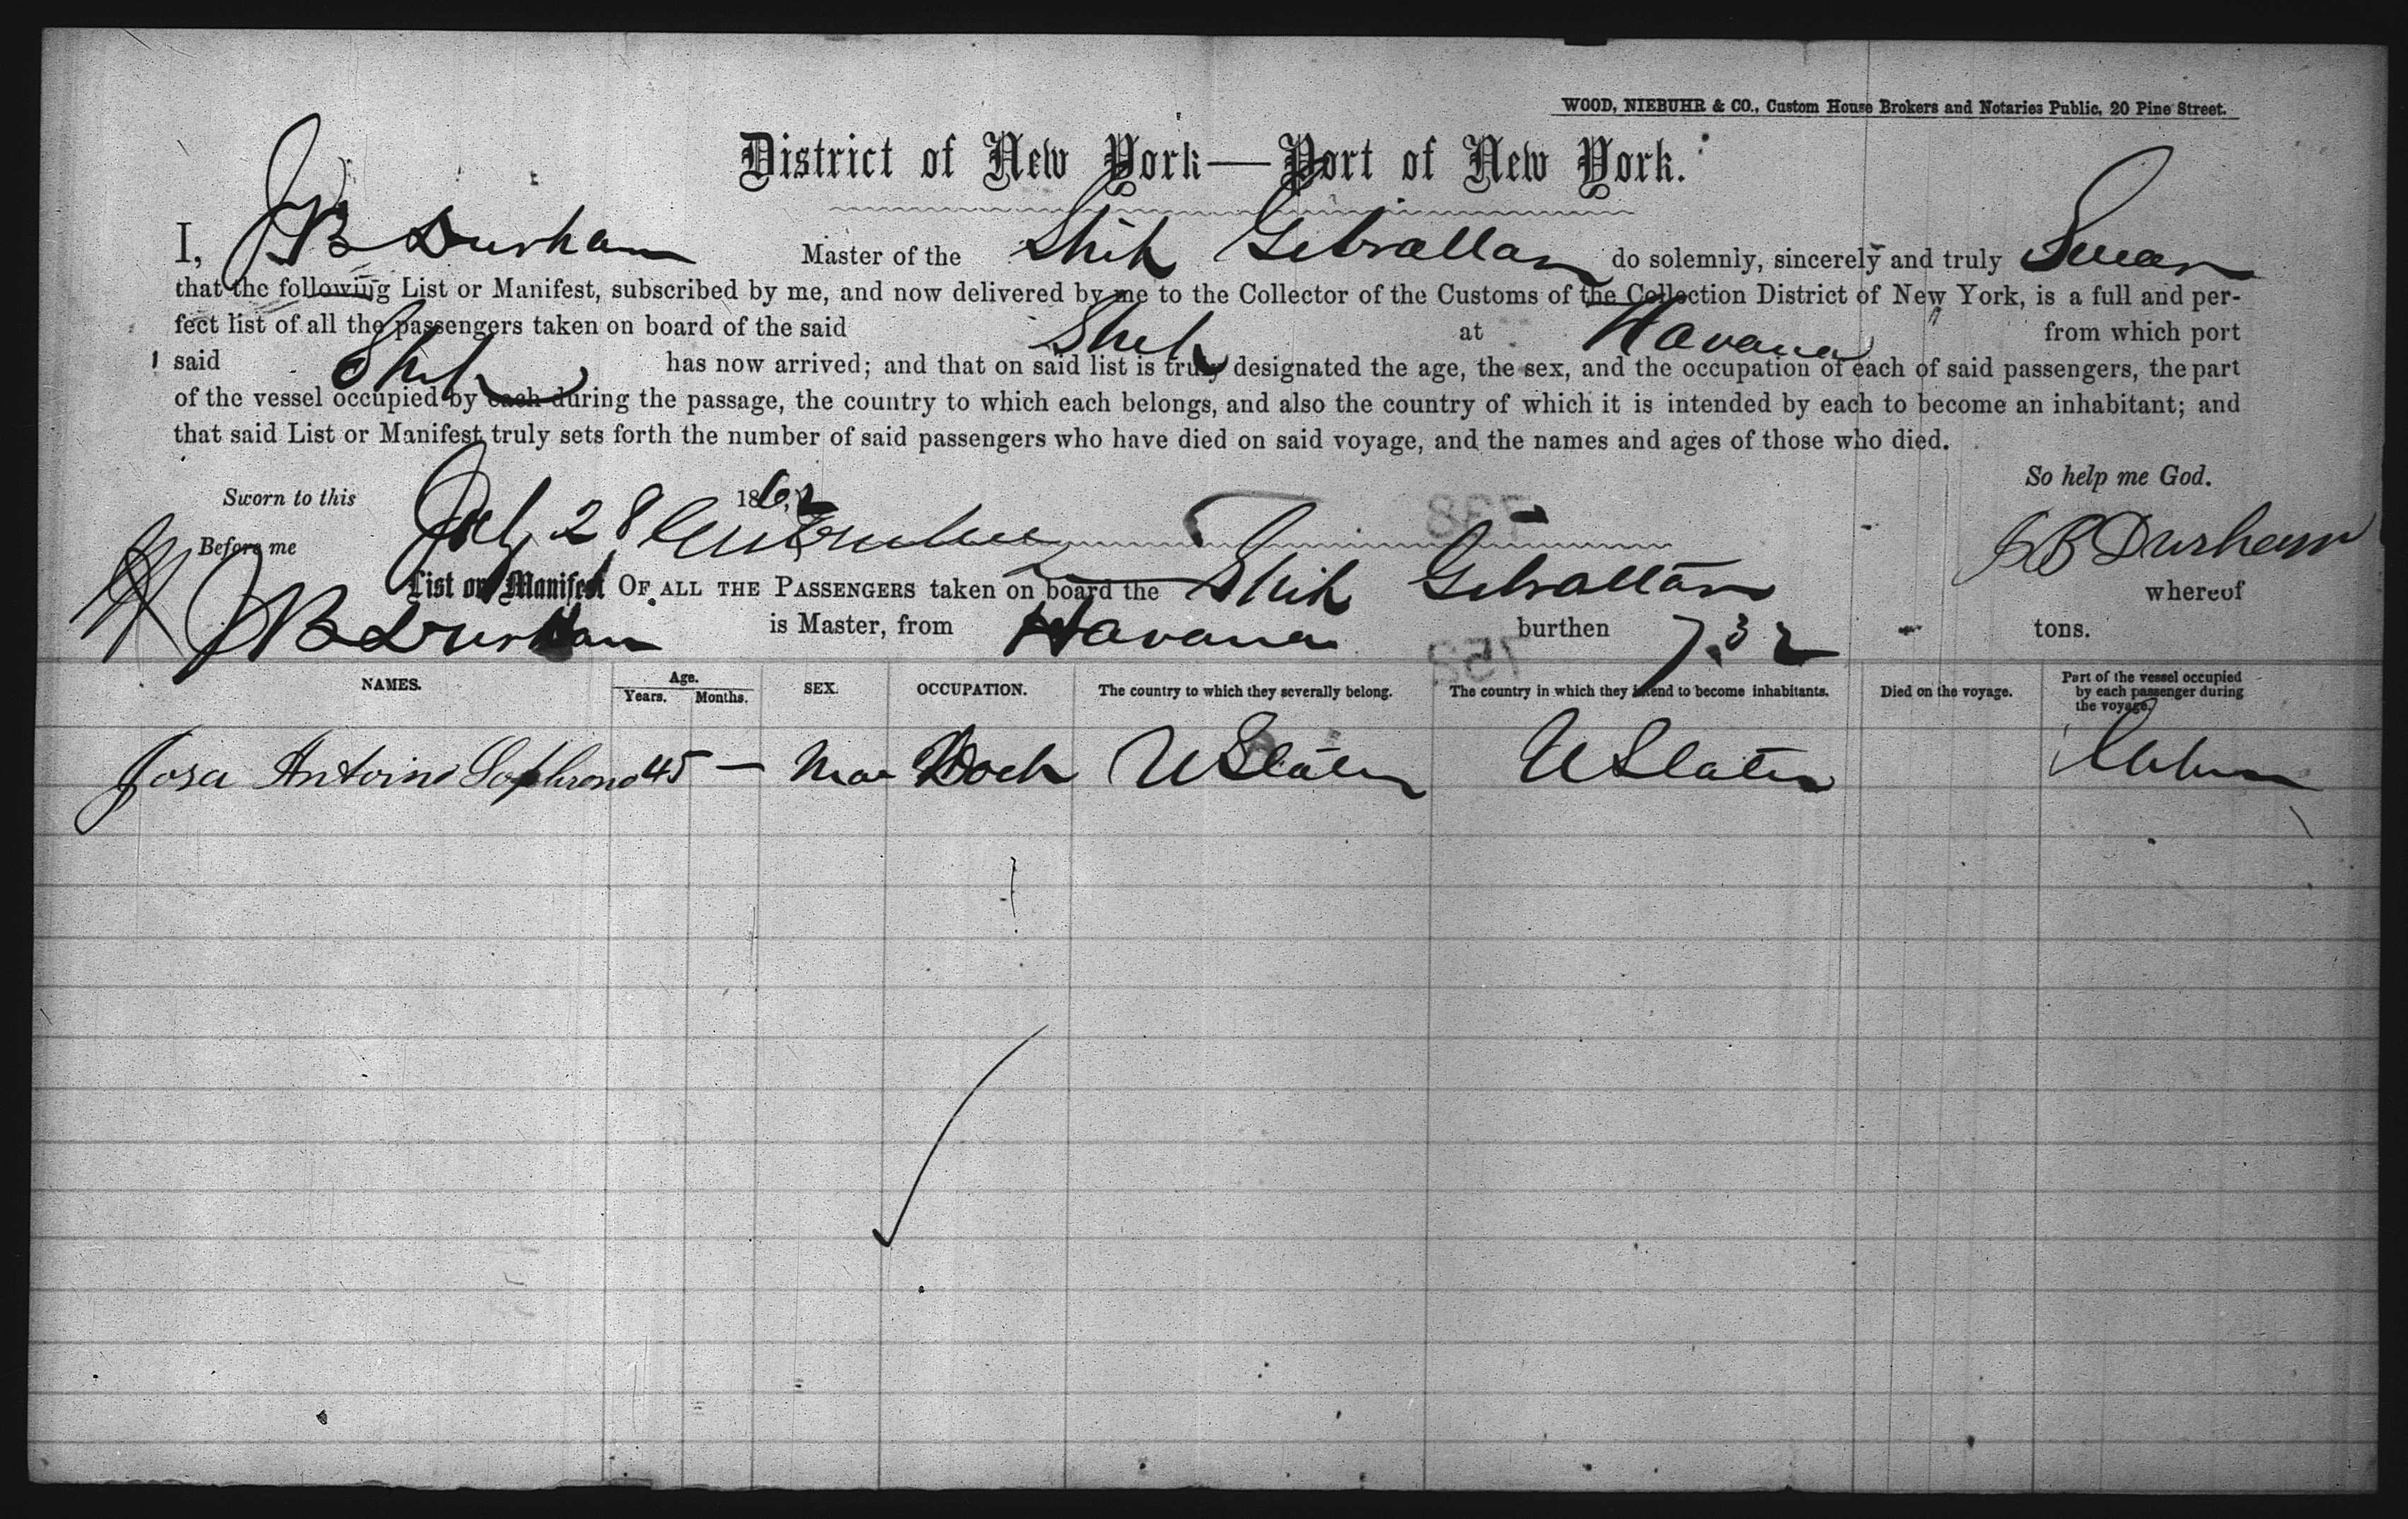 WOOD, NIEBUHR & CO., Custom House Brokers and Notaries Public, 20 Pine Street.
District of New York—Port of New York.
I, J B Durham Master of the Ship Gibraltar do solemnly, sincerely and truly Swear
that the following List or Manifest, subscribed by me, and now delivered by me to the Collector of the Customs of the Collection District of New York, is a full and per-
fect list of all the passengers taken on board of the said Ship at Havana from which port
said Ship has now arrived; and that on said list is truly designated the age, the sex, and the occupation of each of said passengers, the part
of the vessel occupied by each during the passage, the country to which each belongs, and also the country of which it is intended by each to become an inhabitant; and
that said List or Manifest truly sets forth the number of said passengers who have died on said voyage, and the names and ages of those who died.
So help me God.
Sworn to this July 28 1862
Before me J B Durham
List or Manifest OF ALL THE PASSENGERS taken on board the Ship Gibraltar whereof
J B Durham is Master, from Havana burthen 732 tons.
NAMES. Age. Years. Months. SEX. OCCUPATION. The country to which they severally belong. The country in which they intend to become inhabitants. Died on the voyage. Part of the vessel occupied by each passenger during the voyage.
Antoine 45 — U States U States Cabin